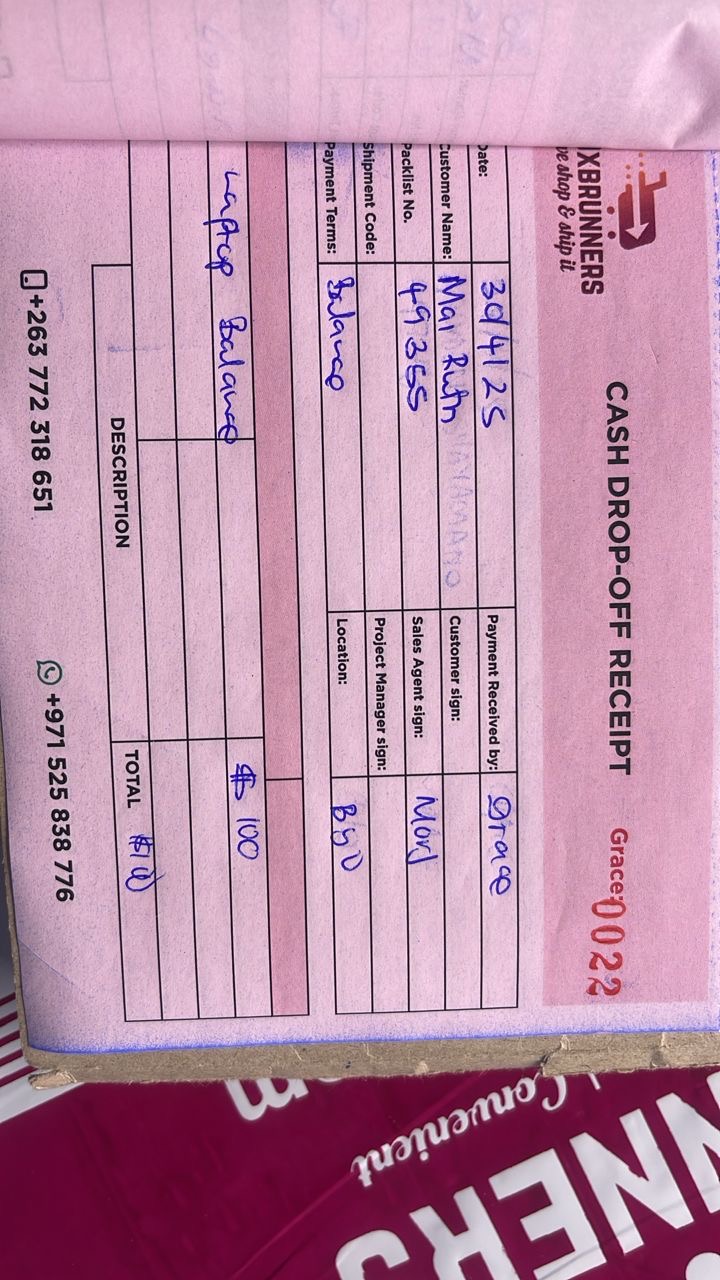 XBRUNNERS
ve shop & ship it
CASH DROP-OFF RECEIPT
Grace: 0022
Date: 30/4/25 Payment Received by: Grace
Customer Name: Mai Ruth Customer sign:
Packlist No. 49355 Sales Agent sign:
Shipment Code: Project Manager sign:
Payment Terms: Balance Location: Byo
Laptop Balance $100
DESCRIPTION TOTAL
+263 772 318 651 +971 525 838 776
Convenient
NNERS